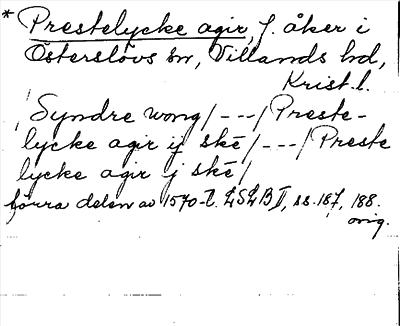 * Prestelycke agir, f. åker i
Österslövs sn, Villands hd,
Krist. l.
/Syndre wong/---/Preste-
lycke agir ij skē/---/Preste
lycke agir j skē/
förra delen av 1570-t. LSLB II, ss. 187, 188.
orig.